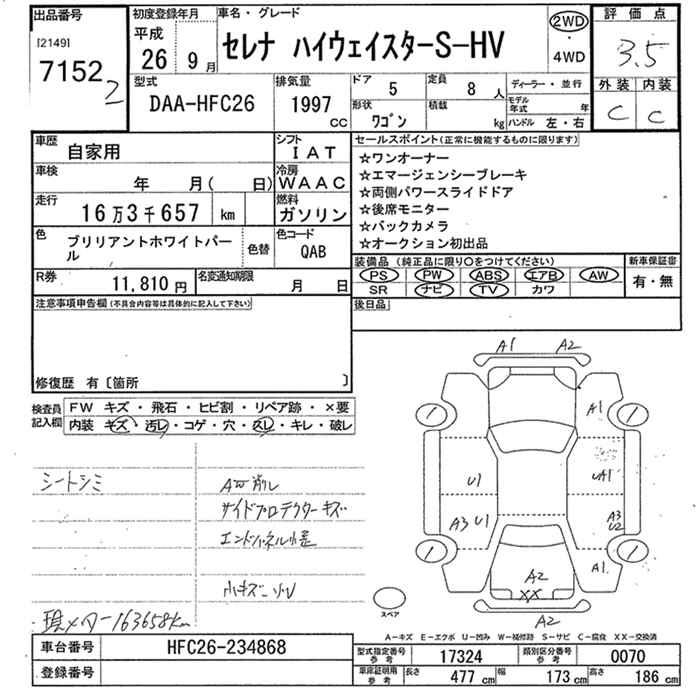 出品番号
[2149]
7152
2
初度登録年月
平成
26年
9月
車名・グレード
セレナ ハイウェイスターS-HV
2WD
・
4WD
評価点
3.5
外装 内装
C C
型式
DAA-HFC26
排気量
1997
CC
ドア
5
定員
8人
形状
ワゴン
積載
kg
ディーラー・並行
モデル年式 年
ハンドル 左・右
車歴
自家用
シフト
IAT
車検
年 月( 日)
冷房
WAAC
走行
16万3千657 km
燃料
ガソリン
色
ブリリアントホワイトパール
色替
色コード
QAB
R券
11,810円
名変通知期限
月 日
セールスポイント(正常に機能するものに限ります)
☆ワンオーナー
☆エマージェンシーブレーキ
☆両側パワースライドドア
☆後席モニター
☆バックカメラ
☆オークション初出品
装備品(純正品に限り○をつけてください)
PS PW ABS エアB AW
SR ナビ TV カワ
新車保証書
有・無
後日品
注意事項申告欄(不具合内容等は具体的に記入して下さい)
修復歴 有〔箇所 〕
検査員記入欄
FW キズ・飛石・ヒビ割・リペア跡・×要
内装 キズ・汚レ・コゲ・穴・スレ・キレ・破レ
シートシミ
サイドプロテクターキズ
小キズ
現メーター163658km
A1 A2
A1
U1
A3 U1
UA1
A3
U2
A1
A2
XX
A2
スペア
A-キズ E-エクボ U-凹み W-補修跡 S-サビ C-腐食 XX-交換済
車台番号
HFC26-234868
登録番号
型式指定番号
参考
17324
類別区分番号
参考
0070
車庫証明用
参考
長さ 477cm
幅 173cm
高さ 186cm